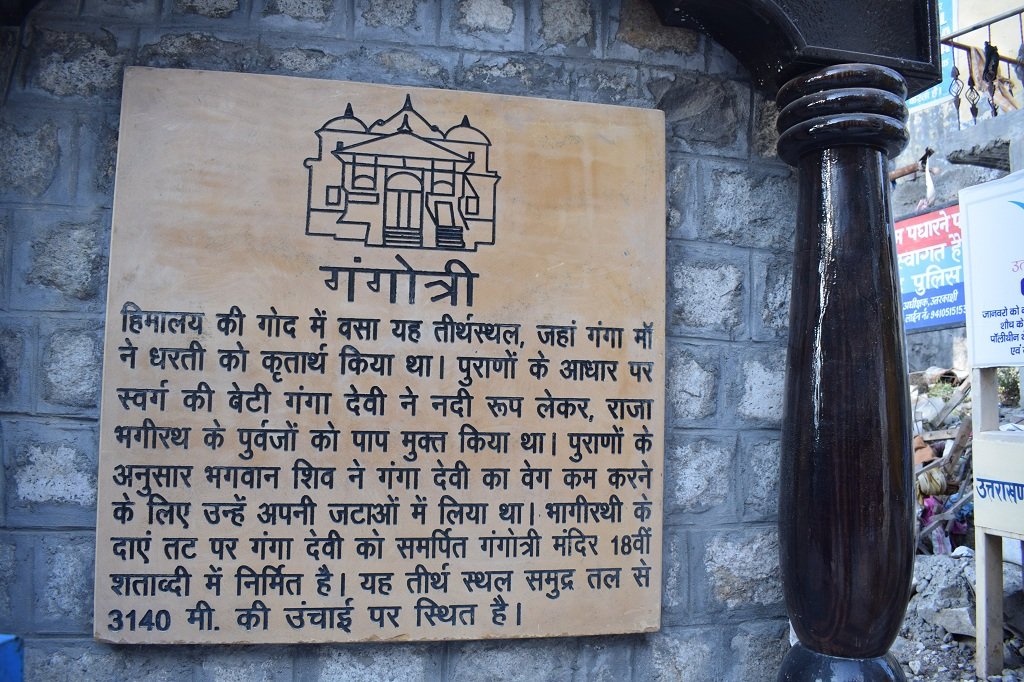 गंगोत्री
हिमालय की गोद में वसा यह तीर्थस्थल, जहां गंगा माँ
ने धरती को कृतार्थ किया था। पुराणों के आधार पर
स्वर्ग की बेटी गंगा देवी ने नदी रूप लेकर, राजा
भगीरथ के पुर्वजों को पाप मुक्त किया था। पुराणों के
अनुसार भगवान शिव ने गंगा देवी का वेग कम करने
के लिए उन्हें अपनी जटाओं में लिया था। भागीरथी के
दाएं तट पर गंगा देवी को समर्पित गंगोत्री मंदिर 18वीं
शताब्दी में निर्मित है। यह तीर्थ स्थल समुद्र तल से
3140 मी. की उंचाई पर स्थित है।
पधारने
स्वागत है
पुलिस
उत्तरकाशी
जानवरो को
शौच के
पॉलीथीन
एवं